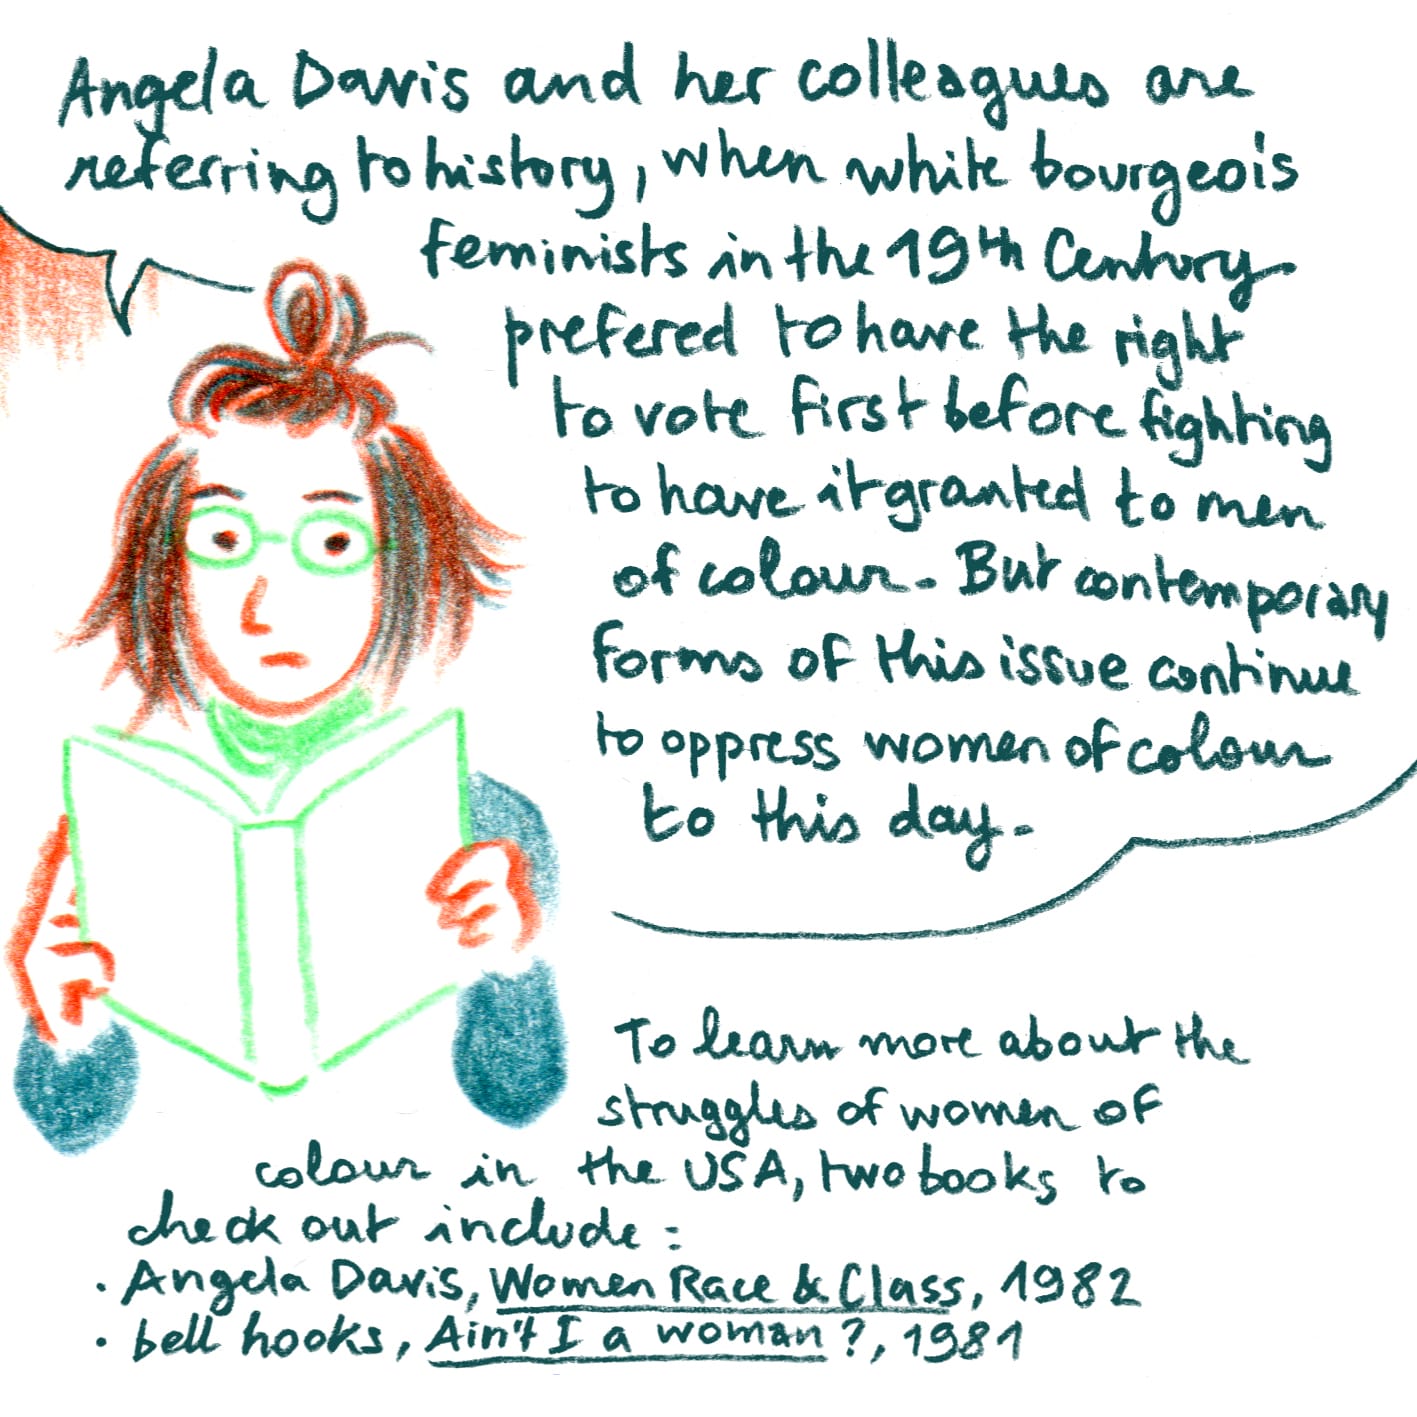 Angela Davis and her colleagues are
referring to history, when white bourgeois
feminists in the 19th Century
prefered to have the right
to vote first before fighting
to have it granted to men
of colour. But contemporary
forms of this issue continue
to oppress women of colour
to this day.
To learn more about the
struggles of women of
colour in the USA, two books to
check out include :
• Angela Davis, Women Race & Class, 1982
• bell hooks, Ain't I a woman ?, 1981